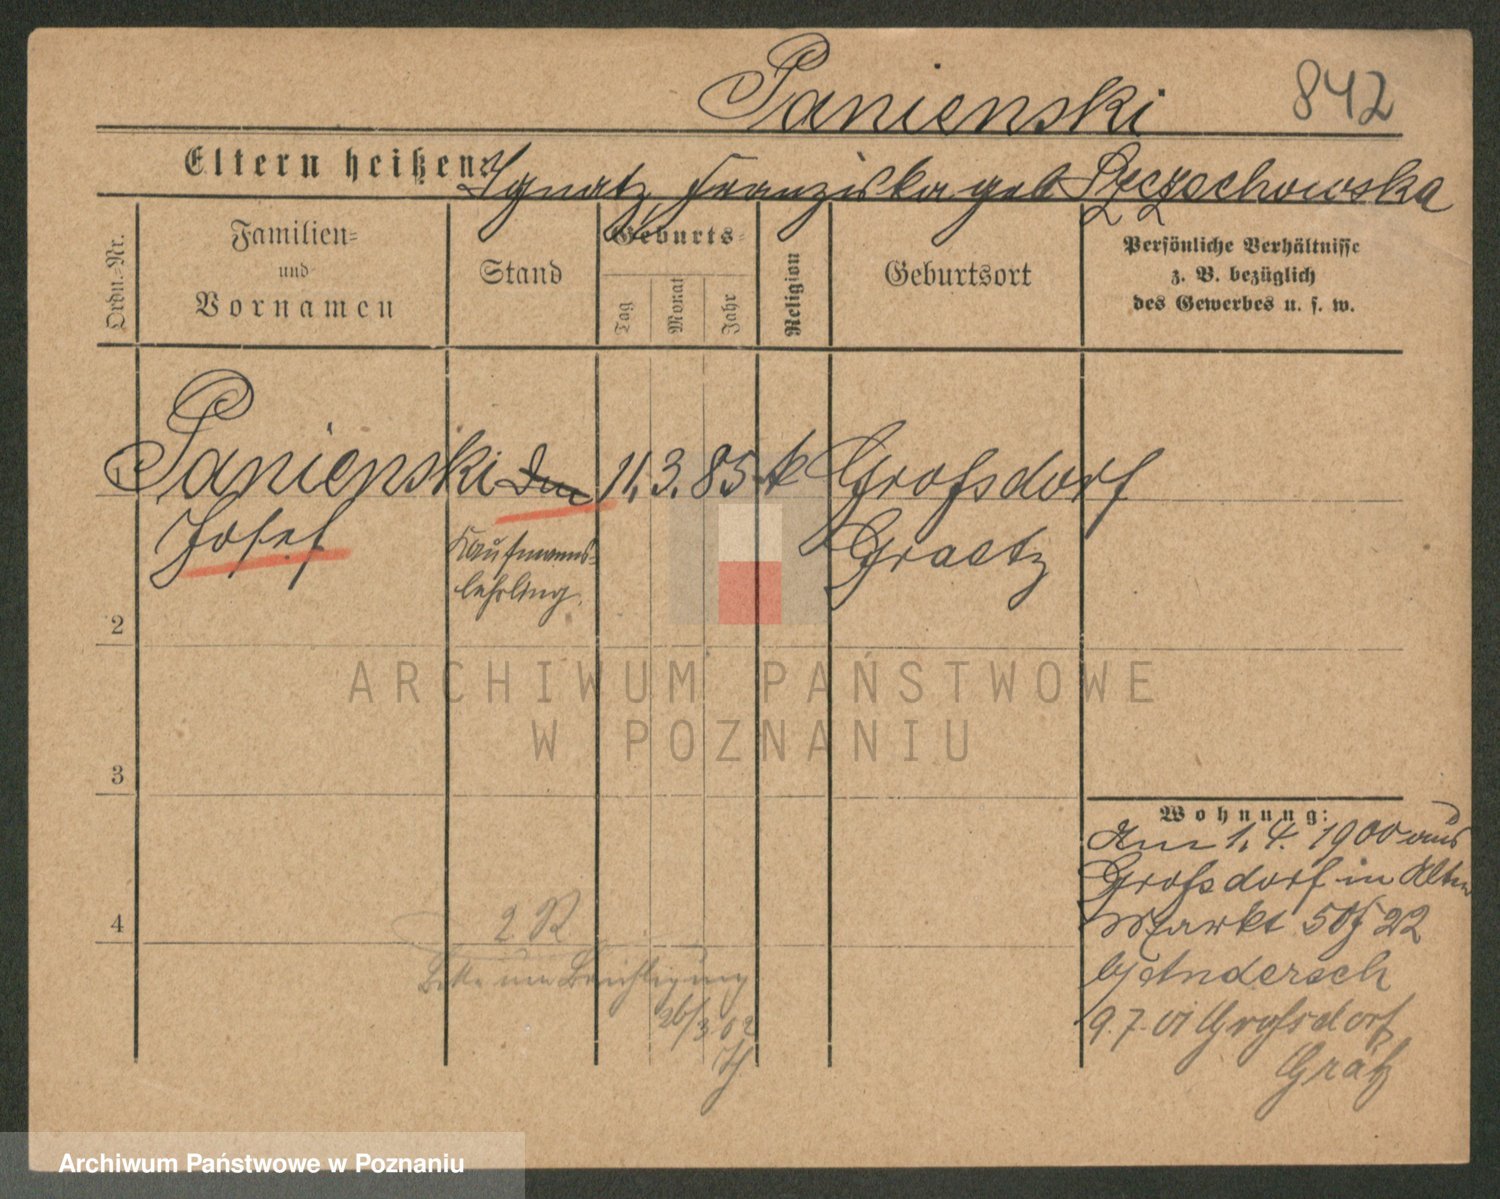 Panienski 842
Eltern heißen: Ignatz, Franziska geb
Ordn.=Nr.
Familien=
und
Vornamen
Stand
Geburts=
Tag
Monat
Jahr
Religion
Geburtsort
Persönliche Verhältnisse
z. B. bezüglich
des Gewerbes u. s. w.
1 Panienski 11. 3. 85 k Grofsdorf
Josef Kaufmanns- Graetz
lehrling.
2
3
4
Wohnung:
Am 1. 4. 1900 aus
Grofsdorf in Alten
Markt 50 22
b/ Andersch
9.7.01 Grofsdorf
Grätz
2
Bitte um Berichtigung
26/3.02
ARCHIWUM PAŃSTWOWE
W POZNANIU
Archiwum Państwowe w Poznaniu